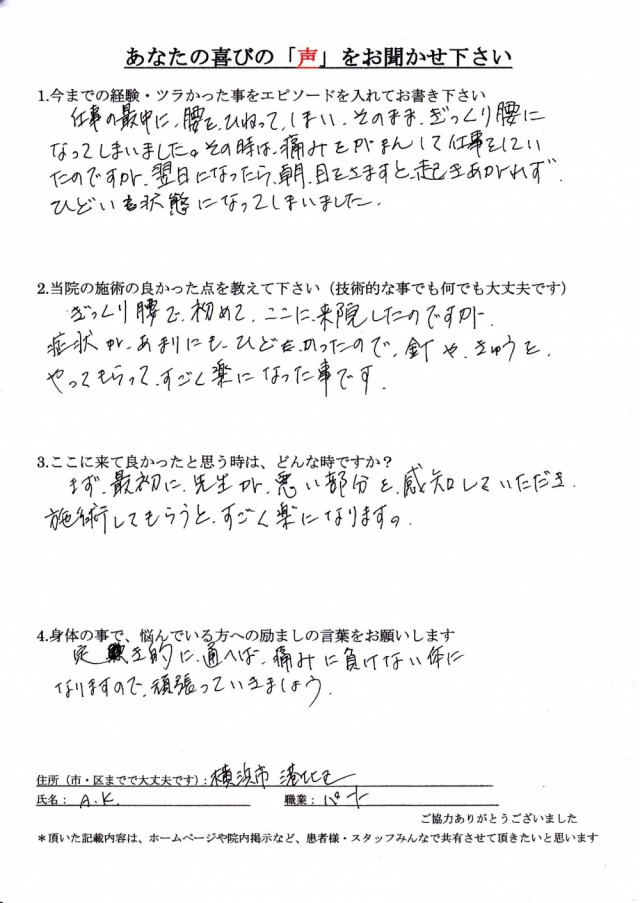 あなたの喜びの「声」をお聞かせ下さい
1.今までの経験・ツラかった事をエピソードを入れてお書き下さい
仕事の最中に、腰を、ひねって、しまい、そのまま、ぎっくり腰に
なってしまいました。その時は、痛みをがまんして仕事をしてい
たのですが、翌日になったら、朝、目をさますと、起きあがれず、
ひどい状態になってしまいました。
2.当院の施術の良かった点を教えて下さい（技術的な事でも何でも大丈夫です）
ぎっくり腰で、初めて、ここに、来院したのですが、
症状が、あまりにも、ひどかったので、針や、きゅうを、
やってもらって、すごく楽になった事です。
3.ここに来て良かったと思う時は、どんな時ですか？
まず、最初に、先生が、悪い部分を、感知していただき、
施術してもらうと、すごく楽になります。
4.身体の事で、悩んでいる方への励ましの言葉をお願いします
定き的に、通へば、痛みに負けない体に
なりますので、頑張っていきましょう。
住所（市・区までで大丈夫です）：横浜市 港北区
氏名： A.K. 職業： パート
ご協力ありがとうございました
＊頂いた記載内容は、ホームページや院内掲示など、患者様・スタッフみんなで共有させて頂きたいと思います